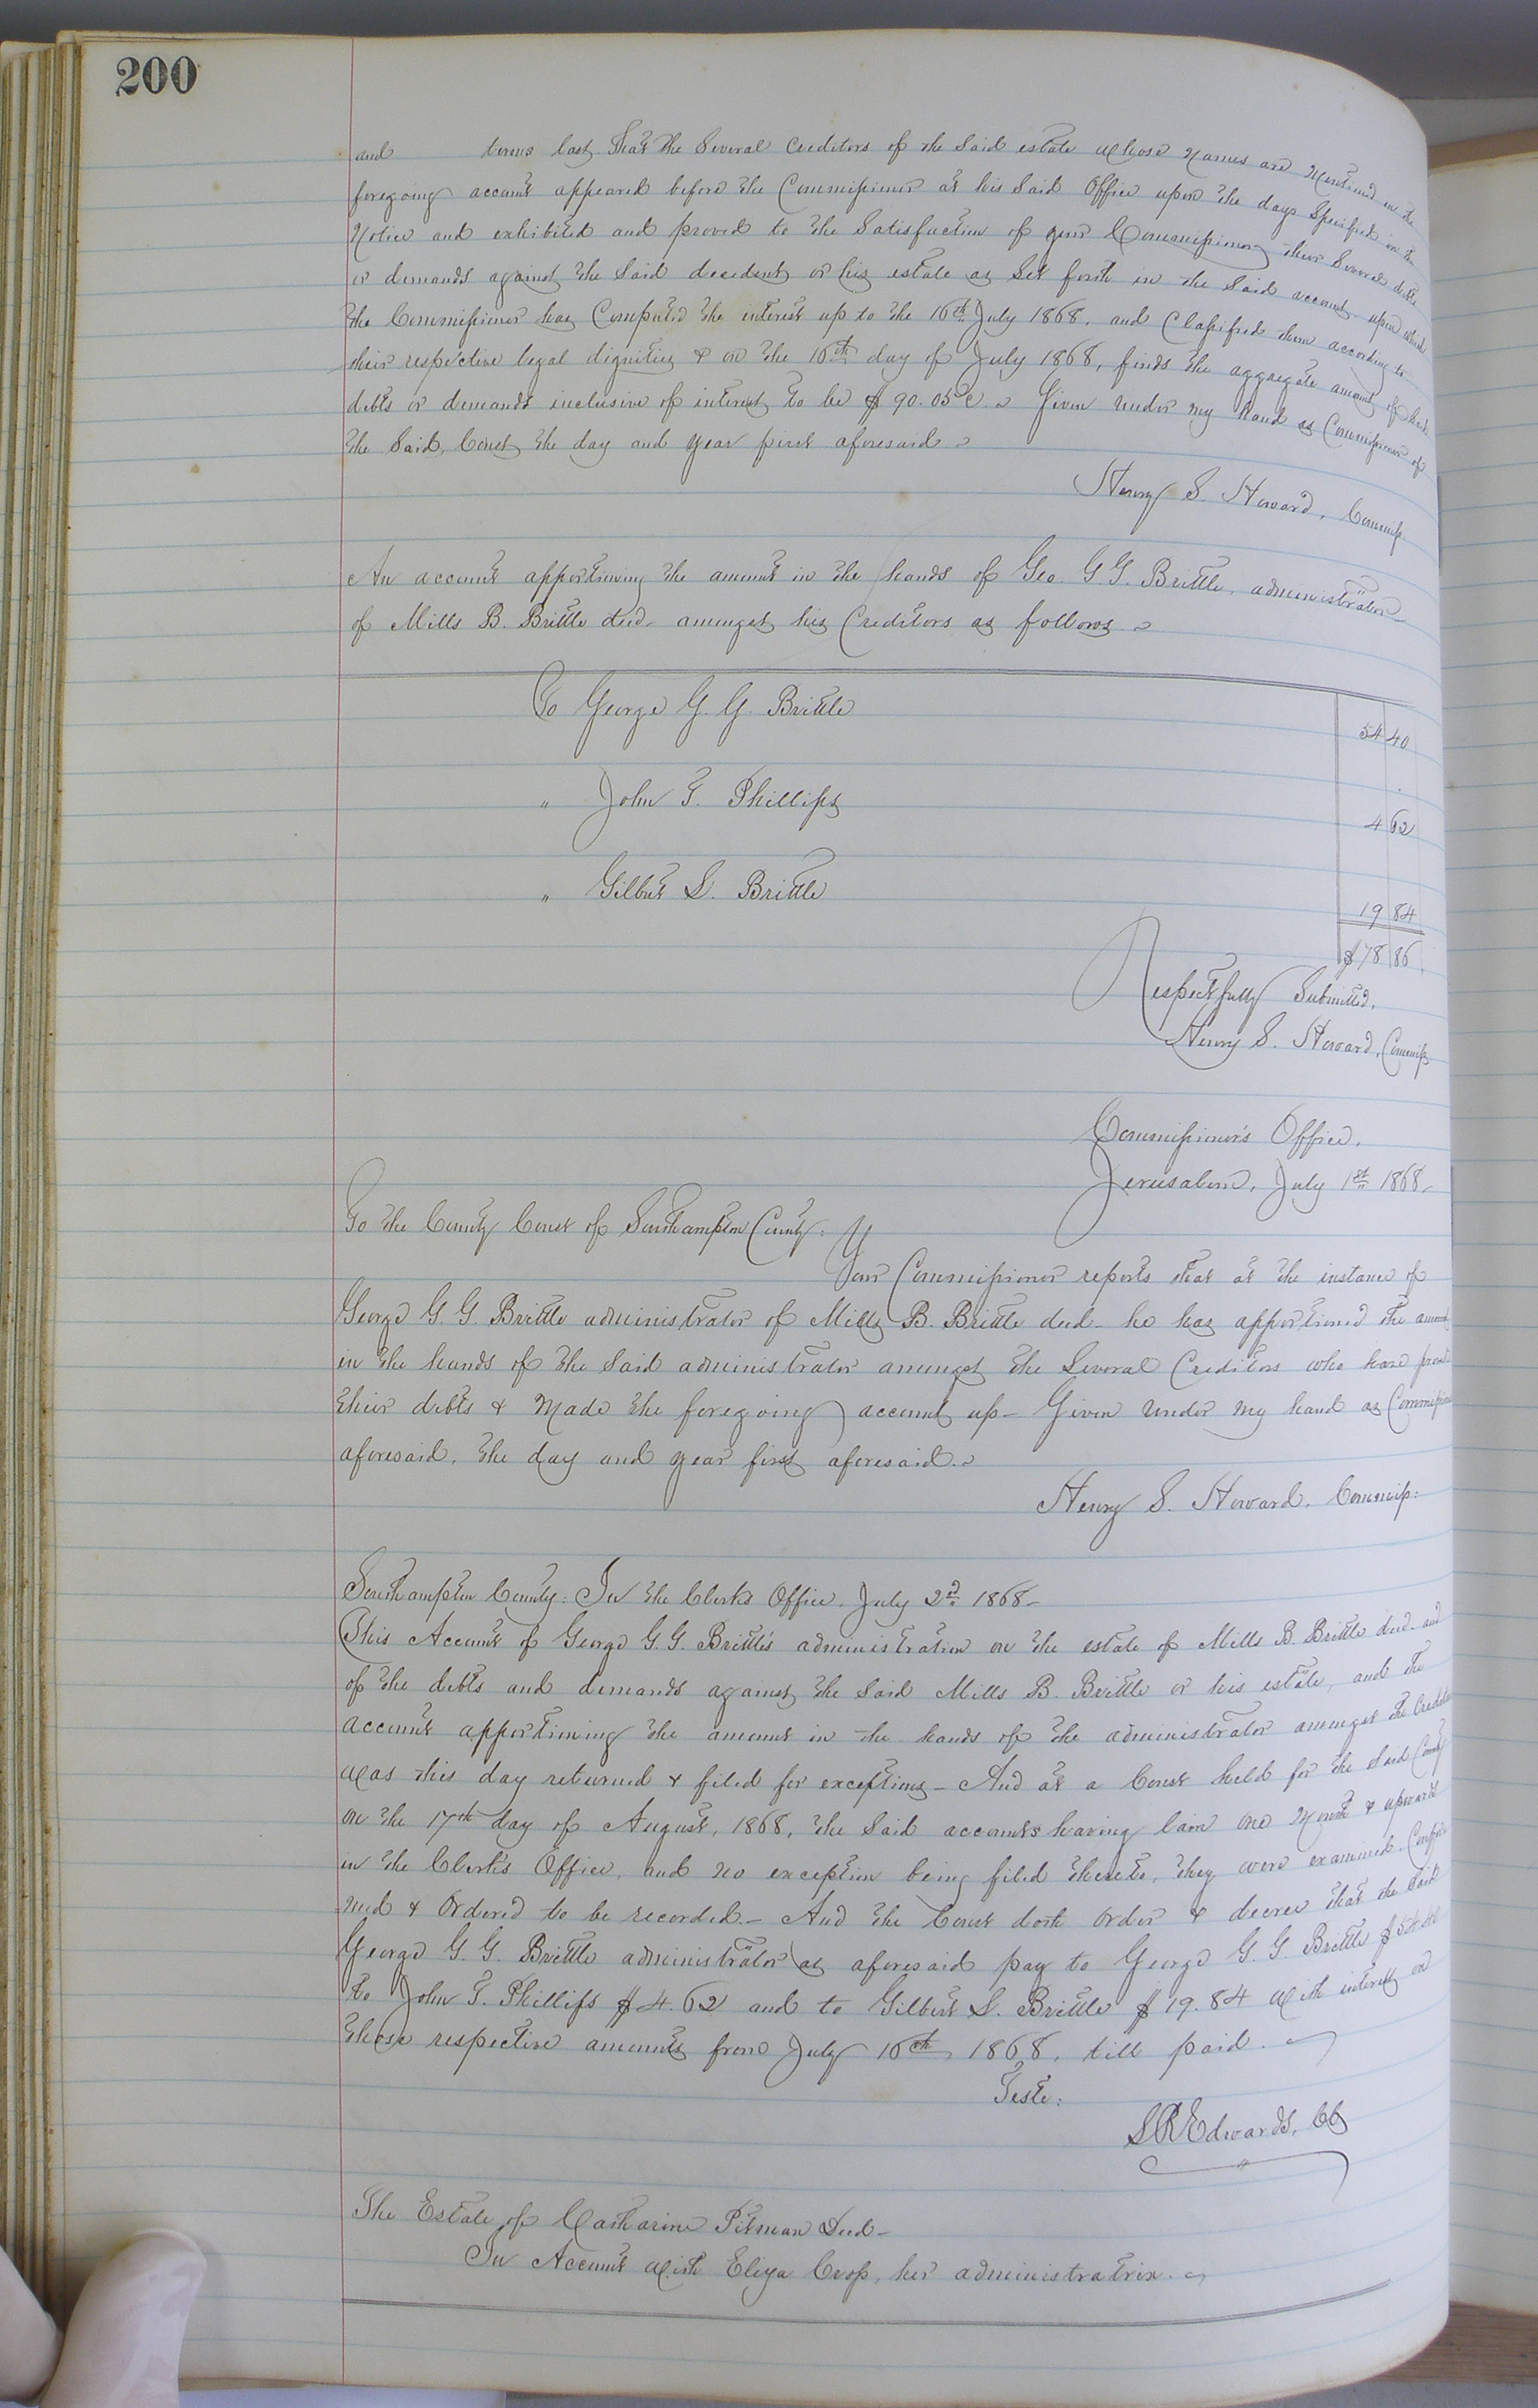 200
and terms last. That the Several Creditors of the Said estate whose Names are Mentioned in the
foregoing account appeared before the Commissioner at his Said Office upon the days Specified in the
Notice and exhibited and proved to the Satisfaction of your Commissioner their Several debts
or demands against the Said decedent or his estate as Set forth in the Said account, upon which
the Commissioner has Computed the interest up to the 16th July 1868, and Classified them according to
their respective legal dignities & on the 16th day of July 1868, finds the aggregate amount of said
debts or demands inclusive of interest to be $90.05c. Given under my hand as Commissioner of
the Said, Court, the day and year first aforesaid
Henry S. Howard, Commiss
An account apportioning the amount in the hands of Geo. G G. Brittle, administrator
of Mills B. Brittle decd- amongst his Creditors as follows
To George G. G. Brittle 54 40
" John T. Phillips 4 62
" Gilbert S. Brittle 19 84
$78 86
Respectfully Submitted,
Henry S. Howard, Commiss.
Commissioner's Office,
Jerusalem, July 1st 1868-
To the County Court of Southampton County:
Your Commissioner reports that at the instance of
George G. G. Brittle administrator of Mills B. Brittle decd- he has apportioned the amount
in the hands of the Said administrator amongst the Several Creditors who have proved
their debts & Made the foregoing account up- Given under my hand as Commissioner
aforesaid, the day and year first aforesaid.
Henry S. Howard, Commiss:
Southampton County: In the Clerks Office, July 2d 1868-
This Account of George G. G. Brittle's administration on the estate of Mills B. Brittle decd. and
of the debts and demands against the Said Mills B. Brittle or his estate, and the
account apportioning the amount in the hands of the administrator amongst the Creditors
was this day returned & filed for exceptions- And at a Court held for the Said County
on the 17th day of August, 1868, the Said accounts having lain one Month & upwards
in the Clerk's Office, and no exception being filed thereto, they were examined, Confir
med & Ordered to be recorded.- And the Court doth Order & decree that the Said
George G. G. Brittle administrator as aforesaid pay to George G. G Brittle $54.40
to John T. Phillips $4.62 and to Gilbert S. Brittle $19.84 with interest on
those respective amounts from July 16th, 1868, till paid.
Teste:
L R Edwards, CC
The Estate of Catharine Pitman Decd-
In Account with Eliza Cross, her administratrix.